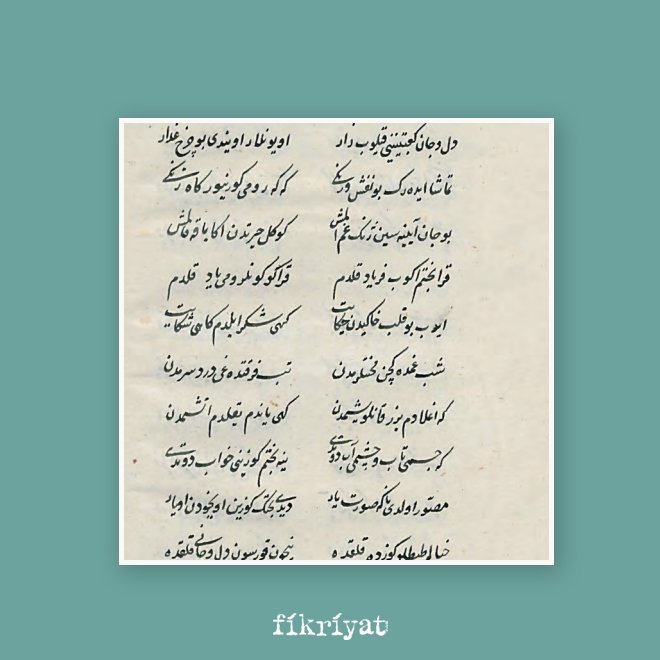 دل و جان کعبتینینی قیلوب زار اویونلار اویندی بو چرخ غدار
تماشا ایده رک بو نقش و رنکی که که رومی کورینور کاه زنکی
بو جان آیینه سین ژنک غم المش کوکل حیرتدن اکا باقه قالمش
قرا بختم اکوب فریاد قلدم قراکو کونلرومی یاد قلدم
ایدوب بو قلب خاکیدن حکایت کهی شکر ایلدم کاهی شکایت
شب غمده کچن محنتلرمدن تب فرقتده غی دردسرمدن
که اغلادم قانلو یشمدن کهی یاندم یقلدم آتشمدن
که جسمی تاب و چشمی آب دوتدی ینه بختم کوزینی خواب دوتدی
مصور اولدی ناکه صورت یار دیدی بختک کوزین اویخودن اویار
خیالی کوزده قلقده نیچون قورسون دل و جانی قلقده
fikriyat